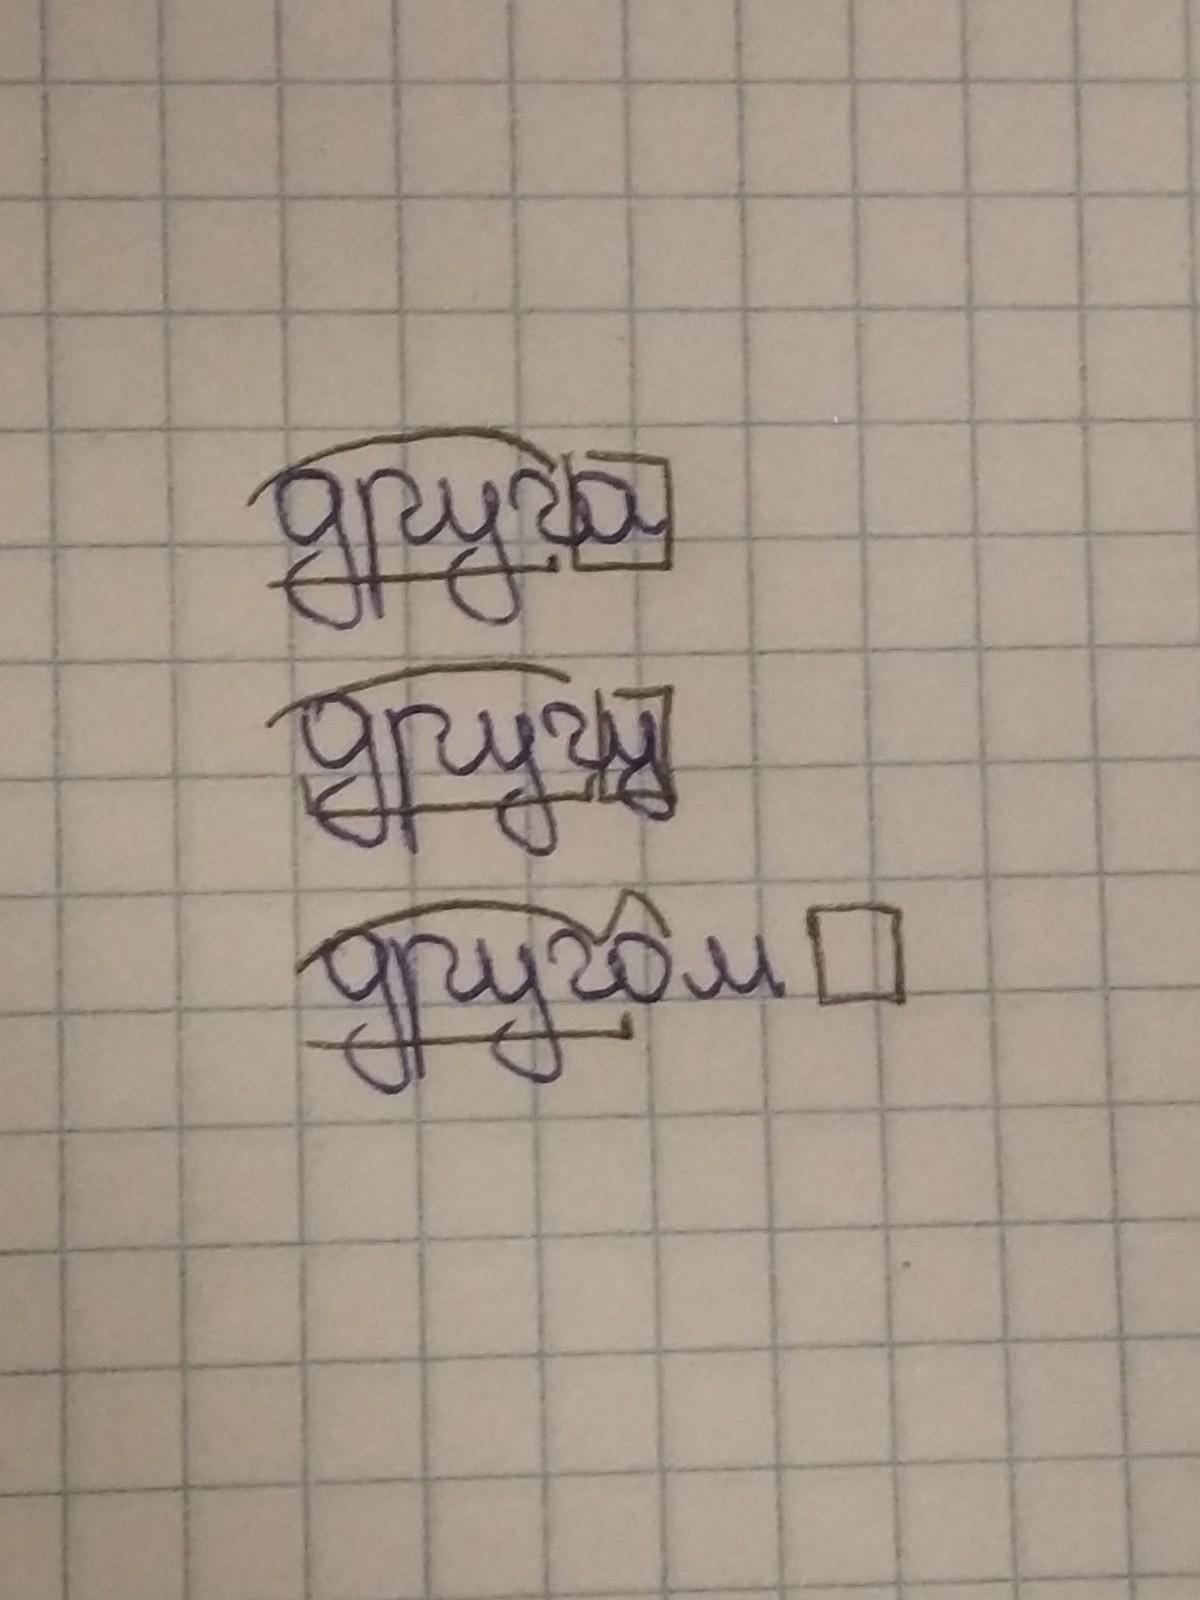 друга
другу
другом